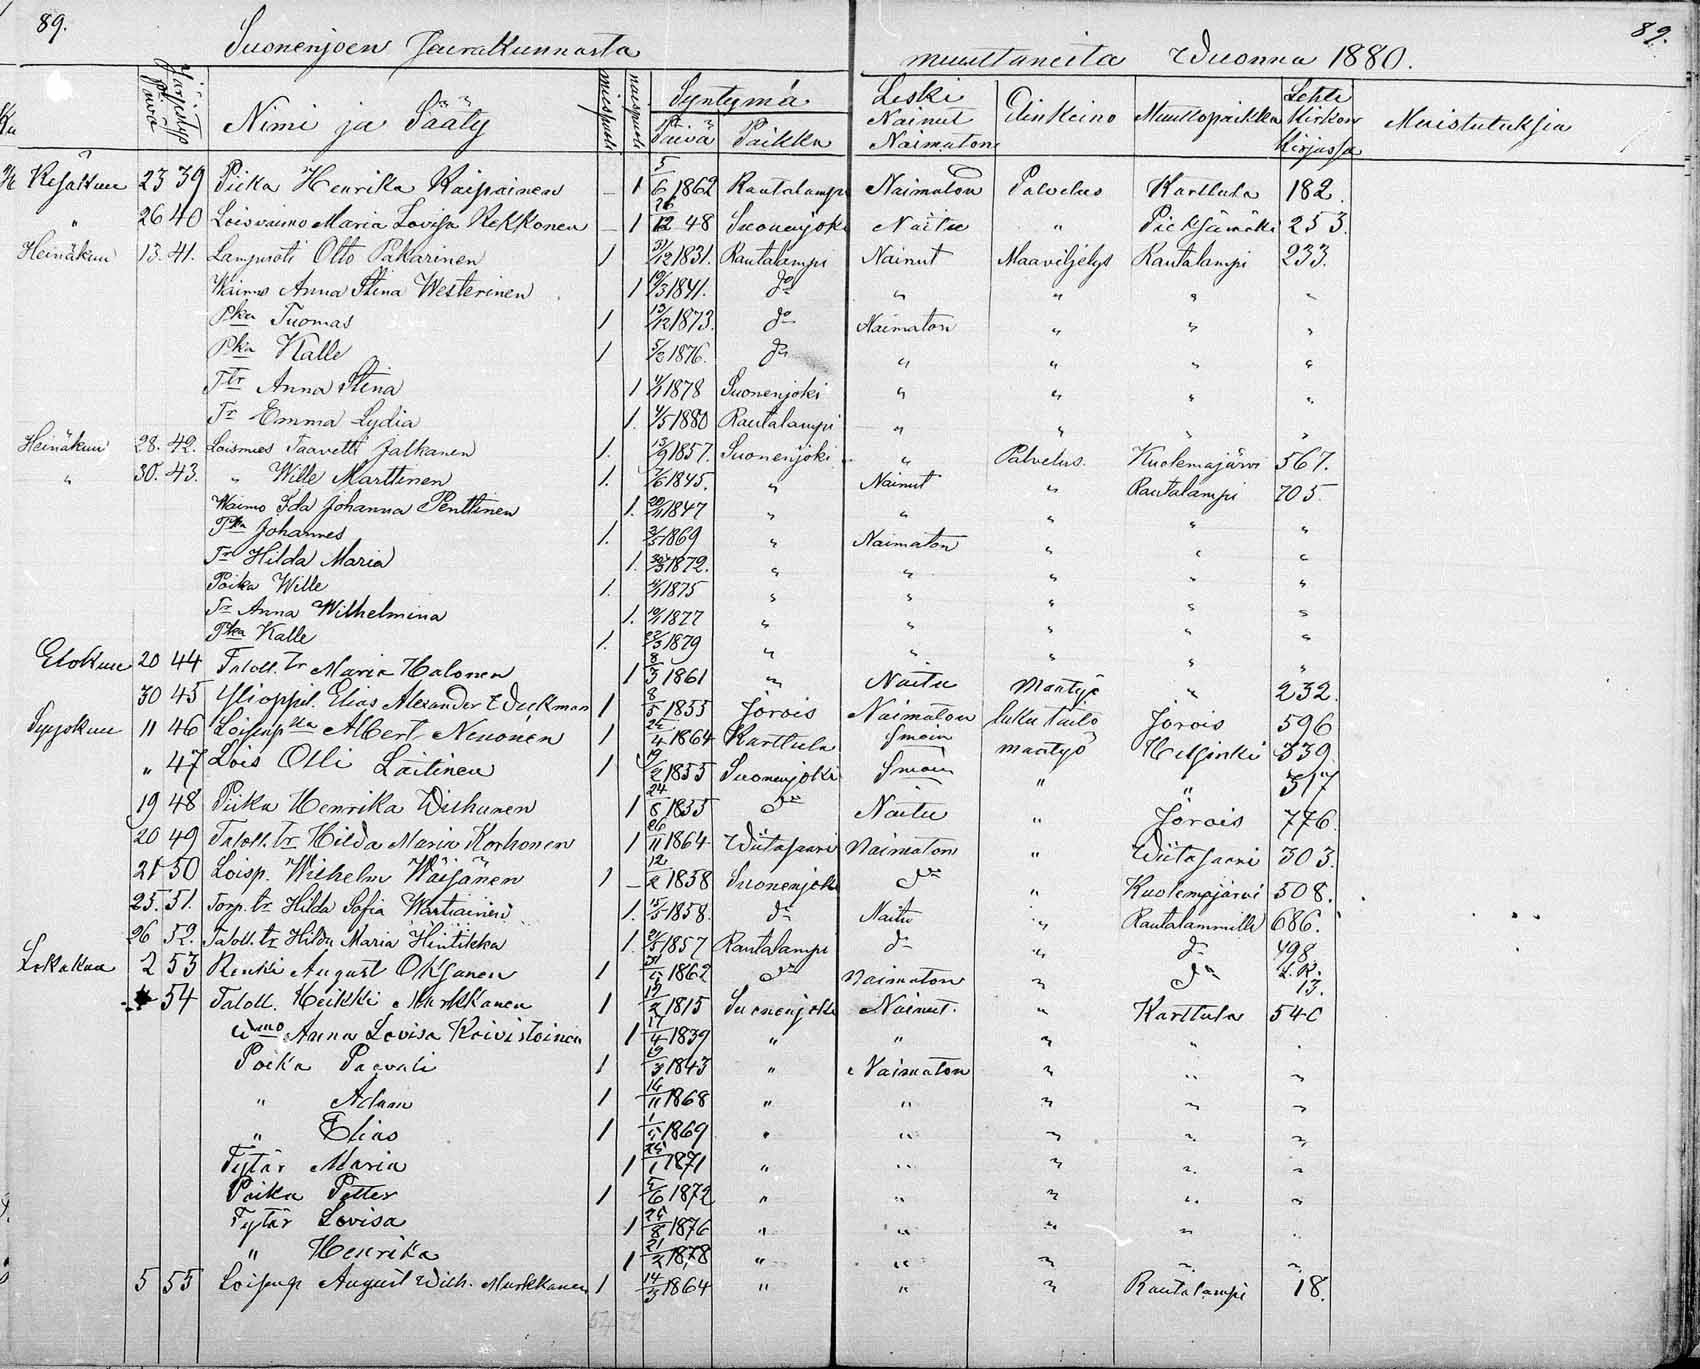 89.
89.
Suonenjoen Seurakunnasta muuttaneita Wuonna 1880.
Järjestys Päiwä Nimi ja Sääty miespuoli naispuoli Syntymä Päivä Paikka Leski Nainut Naimaton Elinkeino Muuttopaikka Lehti Kirkon Kirjassa Muistutuksia
Kesäkuu 23 39 Piika Henrika Kaipainen – 1 5/6 1862 Rautalampi Naimaton Palvelus Karttula 182.
" 26 40 Loisvaimo Maria Lovisa Kekkonen – 1 26/12 48 Suonenjoki Naitu " Pieksämäki 253.
Heinäkuu 13. 41. Lampuoti Otto Pakarinen 1 21/12 1831. Rautalampi Nainut Maaviljelys Rautalampi 233.
Waimo Anna Stina Westerinen 1 19/3 1841. do " " " "
Pka Tuomas 1 13/12 1873. do Naimaton " " "
Pka Kalle 1 5/2 1876. do " " " "
Ttr Anna Stina 1 1878 Suonenjoki " " " "
Tr Emma Lydia 1. 4/5 1880 Rautalampi " " " "
Heinäkuu 28. 42. Loismies Taavetti Jalkanen 1. 13/9 1857. Suonenjoki " Palvelus. Kuolemajärvi 567.
" 30. 43. " Wille Marttinen 1. 7/6 1845. " Nainut " Rautalampi 705.
Waimo Ida Johanna Penttinen 1. 20/11 1847 " " " " "
Pka Johannes 1. 2/5 1869 " Naimaton " " "
Tr Hilda Maria 1. 1872. " " " " "
Poika Wille 1. 1875 " " " " "
Tr Anna Wilhelmina 1. 1877 " " " " "
Pka Kalle 1. 22/3 1879 " " " " "
Elokuu 20 44 Taloll. tr Maria Halonen 1 8/3 1861 " Naitu Maatyö " 232.
30 45 Ylioppil. Elias Alexander Wickman 1 8/5 1855 Jorois Naimaton luku tailo Jorois 596
Syyskuu 11 46 Loisenp ka Albert Neuonen 1 25/4 1864 Karttula Smoin maatyö Helsinki 339
" 47 Lois Olli Laitinen 1 19/2 1855 Suonenjoki Smoin " " 517
19 48 Piika Henrika Wichunen 1 24/8 1855 do Naitu " Jorois 776.
20 49 Taloll. tr Hilda Maria Korhonen 1 26/11 1864 Wiitasaari Naimaton " Wiitasaari 303.
21 50 Loisp. Wilhelm Wäisänen 1 – 12/2 1858 Suonenjoki do " Kuolemajärvi 508.
25. 51. Torp. tr Hilda Sofia Wartiainen 1. 15/5 1858. do Naitu " Rautalammille 686.
26 52. Taloll. tr Hilda Maria Hintikka 1. 21/5 1857 Rautalampi do " do 498
Lokakuu 2 53 Renki August Oksanen 1 1862 do Naimaton " do L. K. 13.
54 Taloll. Heikki Markkanen 1 19/2 1815 Suonenjoki Nainut. " Karttula 540
Wmo Anna Lovisa Koivistoinen 1 17/4 1839 " " " " "
Poika Paavali 1 19/3 1843 " Naimaton " " "
" Adam 1 16/11 1868 " " " " "
" Elias 1 1869 " " " " "
Tytär Maria 1 25/1 1871 " " " " "
Poika Petter 1 5/6 1872 " " " " "
Tytär Lovisa 1 25/8 1876 " " " " "
" Henrika 1 21/2 1878 " " " " "
5 55 Loisenp August Wilh. Markkanen 1 14/3 1864 " " " Rautalampi 18.